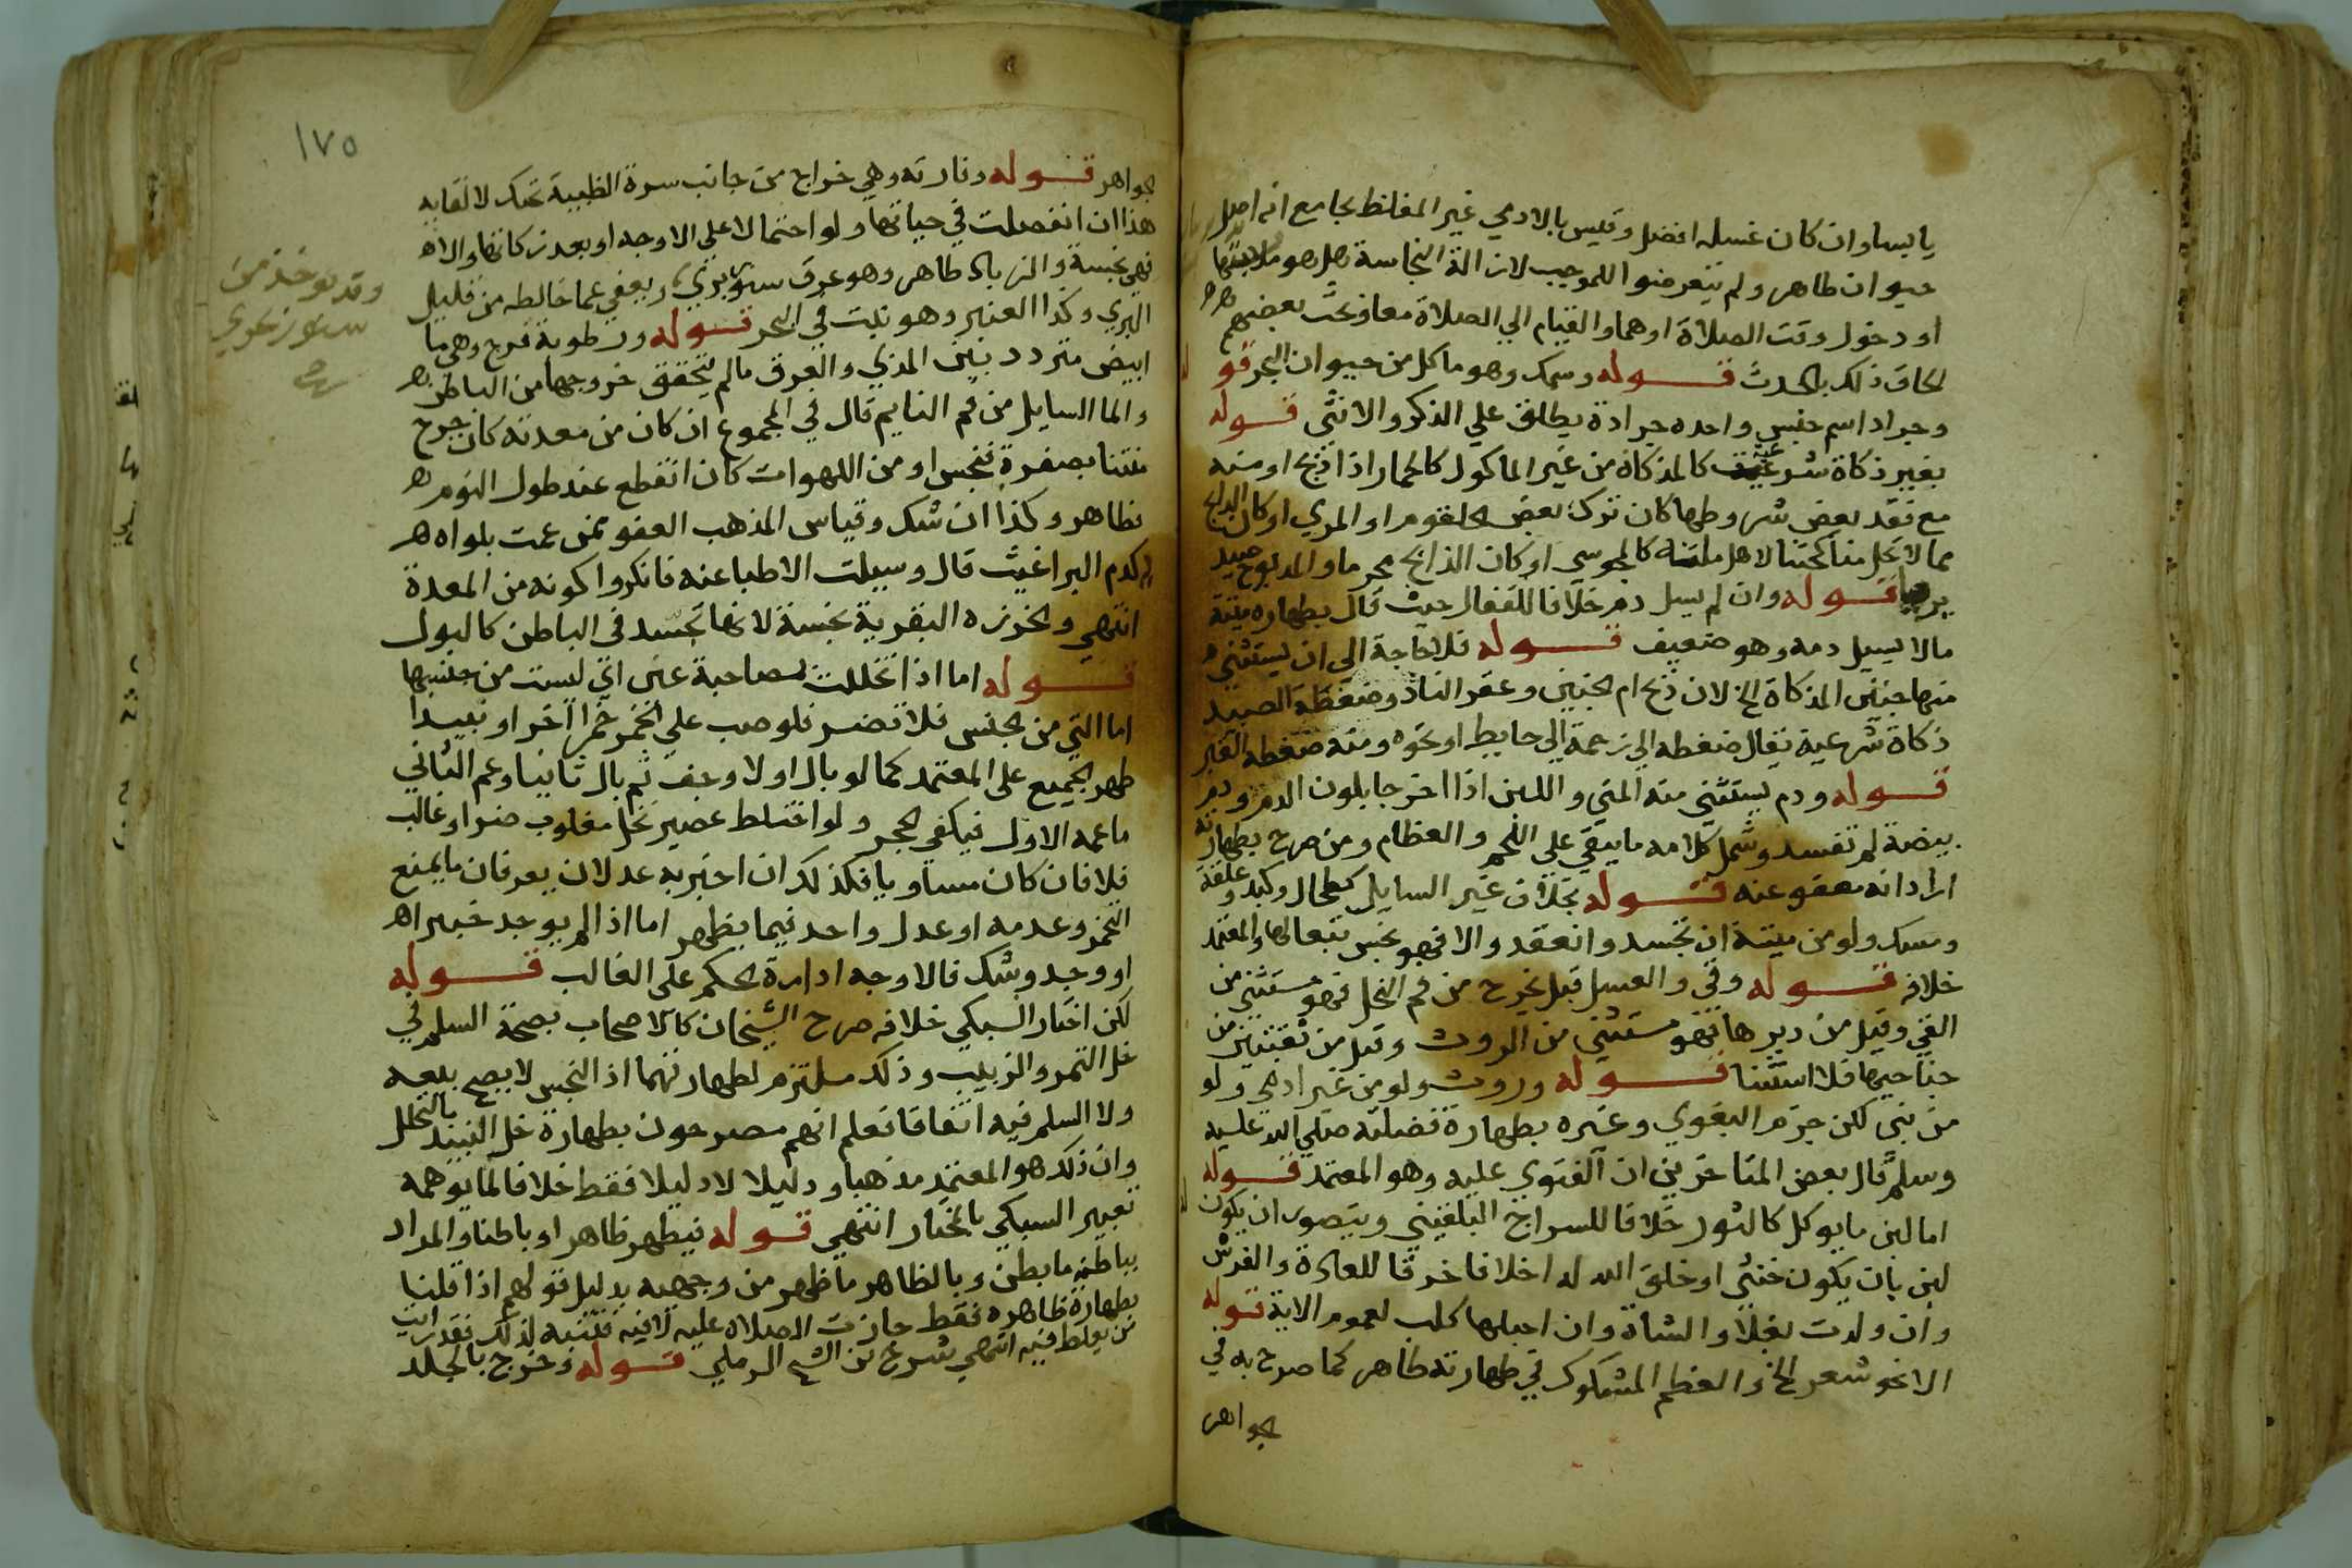 يابسا وان كان غسله افضل وقيس بالادمي غير المغلظ بجامع انه اصل
حيوان طاهر ولم يتعرضوا للموجب لازالة النجاسة هل هو ملابستها
او دخول وقت الصلاة او هما والقيام الي الصلاة معا وبحث بعضهم
الحاق ذلك بالحدث قوله وسمك وهو ما كل من حيوان البحر قو
وجراد اسم جنس واحده جرادة يطلق علي الذكر والانثي قوله
بغير ذكاة شرعية كالمذكاة من غير الماكول كالحمار اذا ذبح او منه
مع فقد بعض شروطها كان ترك بعض الحلقوم او المري او كان الذابح
مما لا تحل مناكحتنا لاهل ملته كالمجوسي او كان الذابح محرما والمذبوح صيد
بريا قوله وان لم يسل دم خلافا للقفال حيث قال بطهارة ميتة
مالا يسيل دمه وهو ضعيف قوله فلا حاجة الي ان يستثني
منها جنين المذكاة الخ لان ذبح ام الجنين وعقر الناد وضغطة الصيد
ذكاة شرعية يقال ضغطه الي زحمة الي حايط او نحوه ومنه ضغطة القبر
قوله ودم يستثني منه المني واللبن اذا اخرجا بلون الدم ودم
بيضة لم تفسد وشمل كلامه ما يبقي علي اللحم والعظام ومن صرح بطهارته
اراد انه معفو عنه قوله بخلاف غير السايل كطحال وكبد وعلقة
ومسك ولو من ميتة ان تجسد وانعقد والا فهو نجس تبعا لها والمعتمد
خلافه قوله وقي والعسل قيل يخرج من فم النحل فهو مستثني من
القي وقيل من دبرها فهو مستثني من الروث وقيل من ثقبتين من
جناحيها فلا استثنا قوله وروث ولو من غير ادمي ولو
من نبي لكن جزم البغوي وغيره بطهارة فضلته صلي الله عليه
وسلم قال بعض المتاخرين ان الفتوي عليه وهو المعتمد قوله
اما لبن ما يوكل كالثور خلافا للسراج البلقيني ويتصور ان يكون
لبن بان يكون خنثي او خلق الله له اخلافا خرقا للعادة والفرس
وان ولدت بغلا والشاة وان احبلها كلب لعموم الاية قوله
الا نحو شعر الخ والعظم المشكوك في طهارته طاهر كما صرح به في
الجواهر
١٧٥
الجواهر قوله وفارته وهي خراج من جانب سرة الظبية تحك لالقايه
هذا ان انفصلت في حياتها ولو احتمالا علي الاوجه او بعد ذكاتها والا
فهي نجسة والزباد طاهر وهو عرق سنور بري ويعفي عما خالطه من قليل
البري وكذا العنبر وهو نبت في البحر قوله ورطوبة فرج وهي ما
ابيض متردد بين المذي والعرق مالم يتحقق خروجها من الباطن
والما السايل من فم النايم قال في المجموع ان كان من معدته كان خرج
منتنا بصفرة فنجس او من اللهوات كان انقطع عند طول النوم
فطاهر وكذا ان شك وقياس المذهب العفو عمن عمت بلواه
كدم البراغيث قال وسيلت الاطبا عنه فانكروا كونه من المعدة
انتهي والخرزه البقرية نجسة لانها تجسد في الباطن كالبول
قوله اما اذا تخللت بمصاحبة عين اي ليست من جنسها
اما التي من الجنس فلا تضر فلو صب علي الخمر خمرا اخر او نبيدا
طهر الجميع علي المعتمد كما لو بال اولا وجف ثم بال ثانيا وعم الثاني
ما عمه الاول فيكفي الحجر ولو اختلط عصير بخل مغلوب ضر او غالب
فلا فان كان مساويا فكذلك ان اخبر به عدلان يعرفان ما يمنع
التخمر وعدمه او عدل واحد فيما يظهر اما اذا لم يوجد خبير
او وجد وشك فالاوجه ادارة الحكم علي الغالب قوله
لكن اختار السبكي خلافه صرح الشيخان كالاصحاب بصحة السلم في
خل التمر والزبيب وذلك مستلزم لطهارتهما اذ النجس لا يصح بيعه
ولا السلم فيه اتفاقا فعلم انهم مصرحون بطهارة خل النبيذ بالتخلل
وان ذلك هو المعتمد مذهبا ودليلا لا دليلا فقط خلافا لما يوهمه
تعبير السبكي بالمختار انتهي قوله فيطهر ظاهرا وباطنا والمراد
بباطنه ما بطن وبالظاهر ما ظهر من وجهيه بدليل قولهم اذا قلنا
بطهارة ظاهره فقط جازت الصلاه عليه لا فيه فتنبه لذلك فقد رايت
من يغلط فيه انتهي شرح من الشيخ الرملي قوله وخرج بالجلد
وقد يوخذ من
سنور بحري